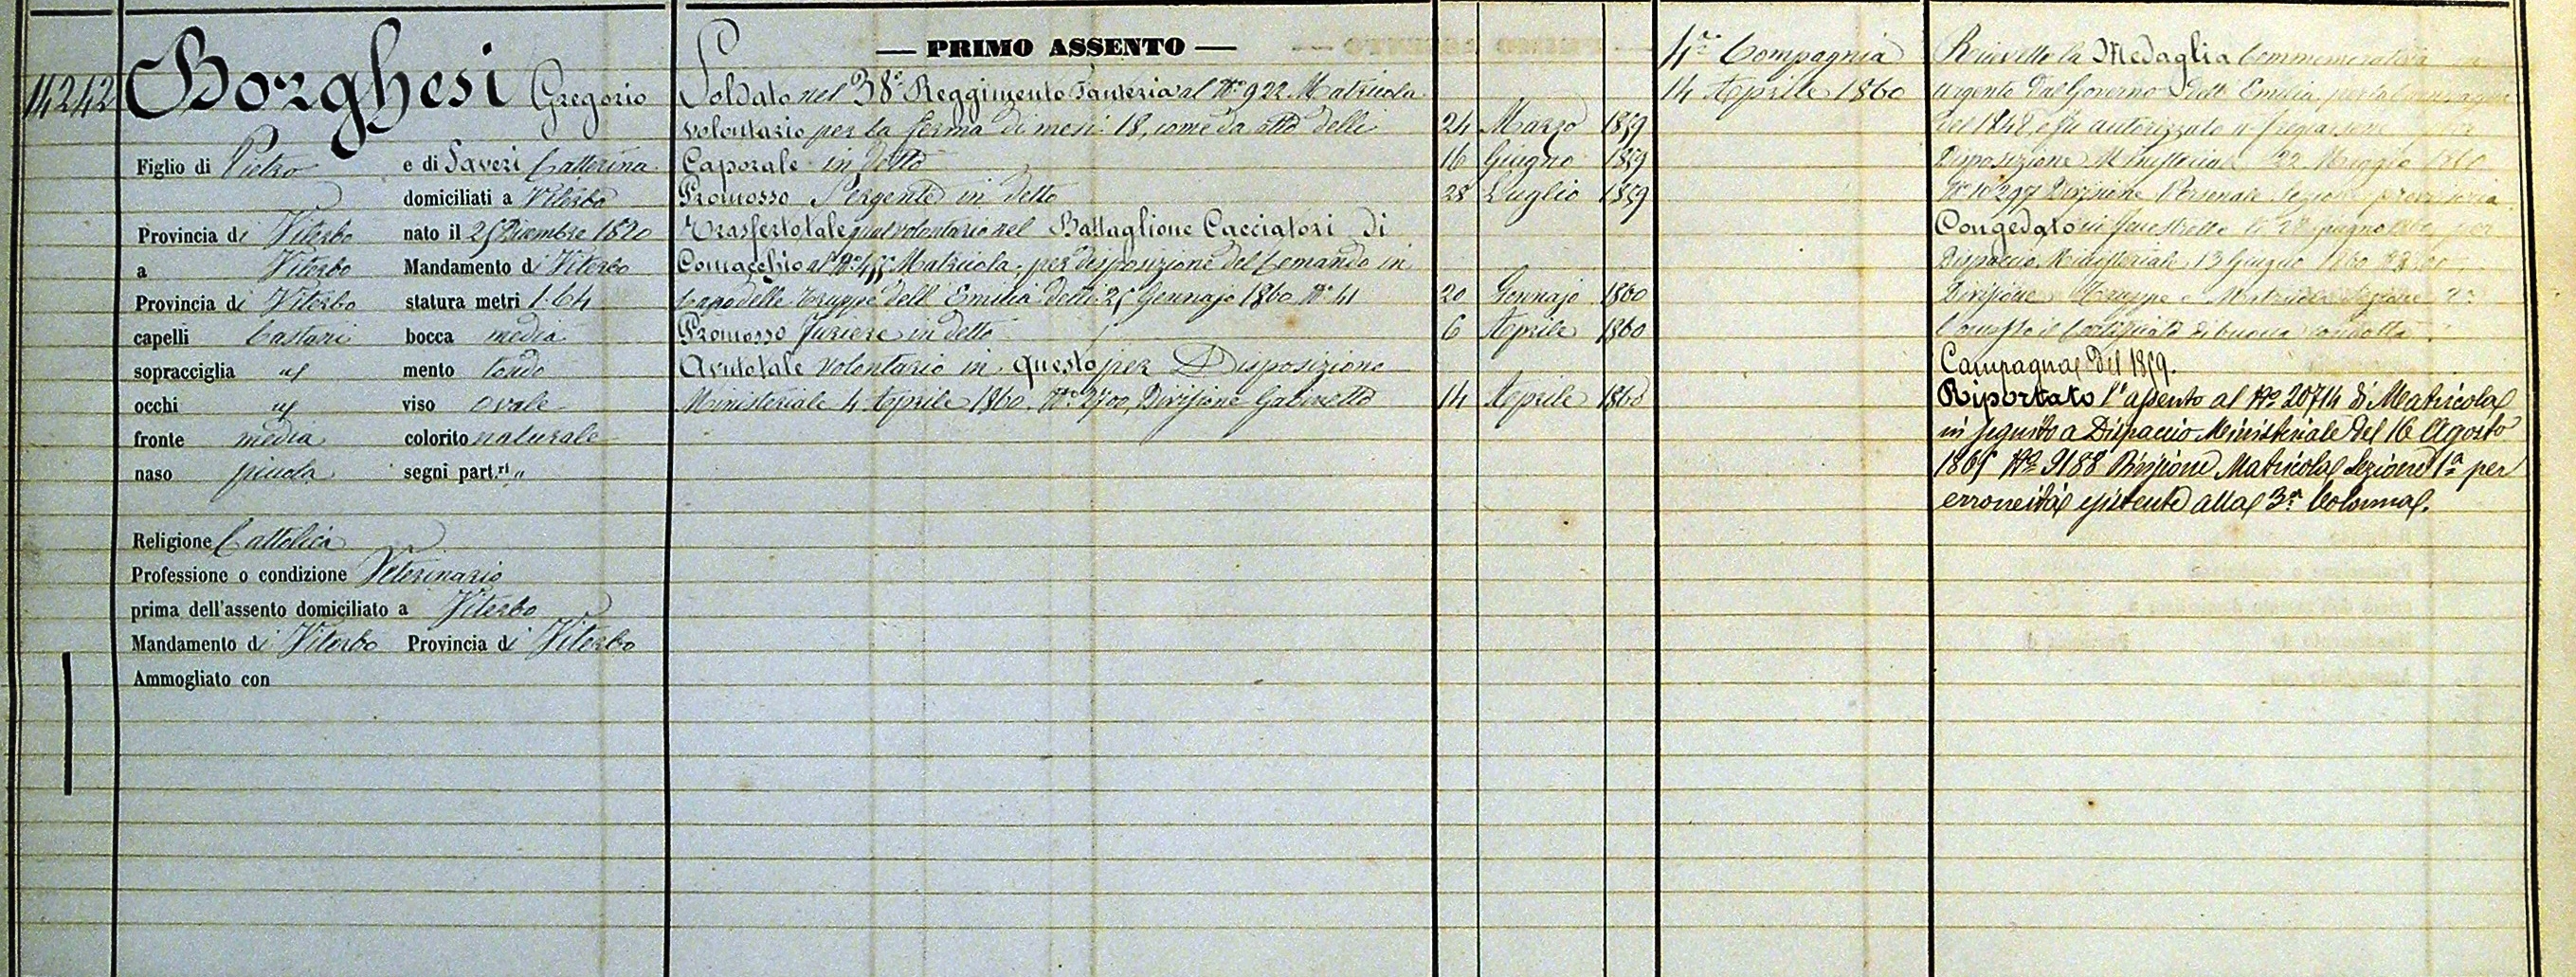 14242
Borghesi Gregorio
Figlio di Pietro e di Saveri Catterina
domiciliati a Viterbo
Provincia di Viterbo nato il 25 Dicembre 1820
a Viterbo Mandamento di Viterbo
Provincia di Viterbo statura metri 1.64
capelli Castani bocca media
sopracciglia id mento tondo
occhi id viso ovale
fronte media colorito naturale
naso piccola segni part.ri "
Religione Cattolica
Professione o condizione Veterinario
prima dell'assento domiciliato a Viterbo
Mandamento di Viterbo Provincia di Viterbo
Ammogliato con
— PRIMO ASSENTO —
Soldato nel 38° Reggimento Fanteria al N° 922 Matricola
volontario per la ferma di mesi 18, come da atto delli 24 Marzo 1859
Caporale in detto 16 Giugno 1859
Promosso Sergente in detto 28 Luglio 1859
Trasferto tale qual volontario nel Battaglione Cacciatori di
Comacchio al N° Matricola, per disposizione del Comando in
Capo delle Truppe dell' Emilia delli 25 Gennajo 1860 N° 41 20 Gennajo 1860
Promosso Furiere in detto 6 Aprile 1860
Avuto tale volontario in questo per Disposizione
Ministeriale 4 Aprile 1860 N° 2700, Divisione Gabinetto 14 Aprile 1860
4a Compagnia
14 Aprile 1860
Ricevette la Medaglia Commemorativa in
argento dal Governo dell' Emilia, per la Campagna
del 1848 e fu autorizzato a fregiarsene per
Disposizione Ministeriale 22 Maggio 1860
N° 10297 Divisione Personale Sezione provvisoria
Congedato in Fenestrelle li Giugno 1860 per
Dispaccio Ministeriale 13 Giugno 1860
Divisione Truppe e Matricola Sezione 2a
Concesso il Certificato di buona condotta.
Campagna del 1859.
Riportato l'assento al N° 20714 di Matricola
in seguito a Dispaccio Ministeriale del 16 Agosto
1865 N° 9188 Divisione Matricola Sezione 1a per
erroneità esistente alla 3a Colonna.